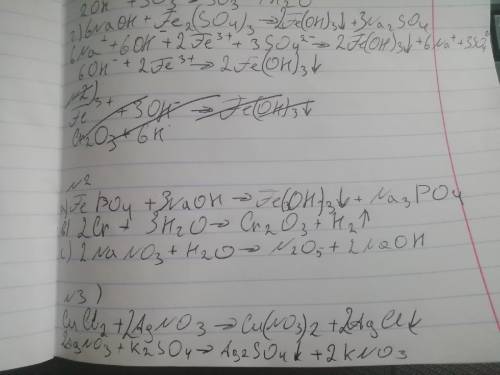 2) 6NaOH + Fe2(SO4)3 → 2Fe(OH)3↓ + 3Na2SO4
6Na⁺ + 6OH⁻ + 2Fe³⁺ + 3SO4²⁻ → 2Fe(OH)3↓ + 6Na⁺ + 3SO4²⁻
6OH⁻ + 2Fe³⁺ → 2Fe(OH)3↓
№2)
Fe³⁺ + 3OH⁻ → Fe(OH)3↓
Cr2O3 + 6H
№2
FePO4 + 3NaOH → Fe(OH)3↓ + Na3PO4
b) 2Cr + 3H2O → Cr2O3 + H2↑
c) 2NaNO3 + H2O → N2O5 + 2NaOH
№3)
CuCl2 + 2AgNO3 → Cu(NO3)2 + 2AgCl↓
2AgNO3 + K2SO4 → Ag2SO4↓ + 2KNO3